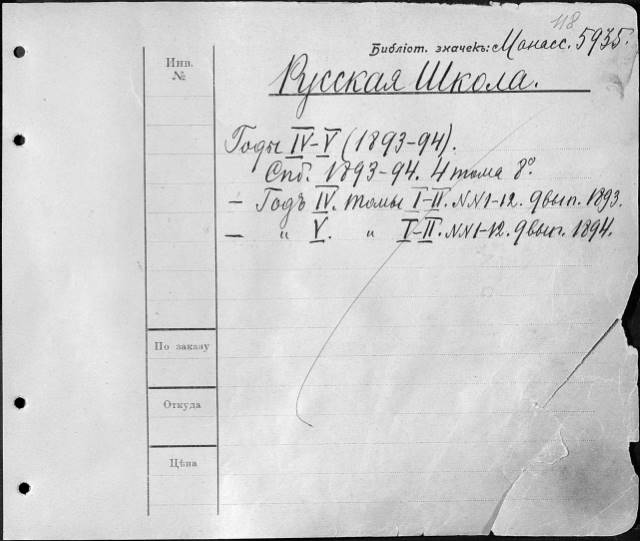 118
Библіот. значекъ: Монасс. 5935.
Инв.
№
Русская Школа.
Годы IV-V (1893-94).
Спб. 1893-94. 4 тома 8°.
— Годъ IV. томы I-II. NN1-12. 9 вып. 1893.
— " V. " I-II. NN1-12. 9 вып. 1894.
По заказу
Откуда
Цѣна